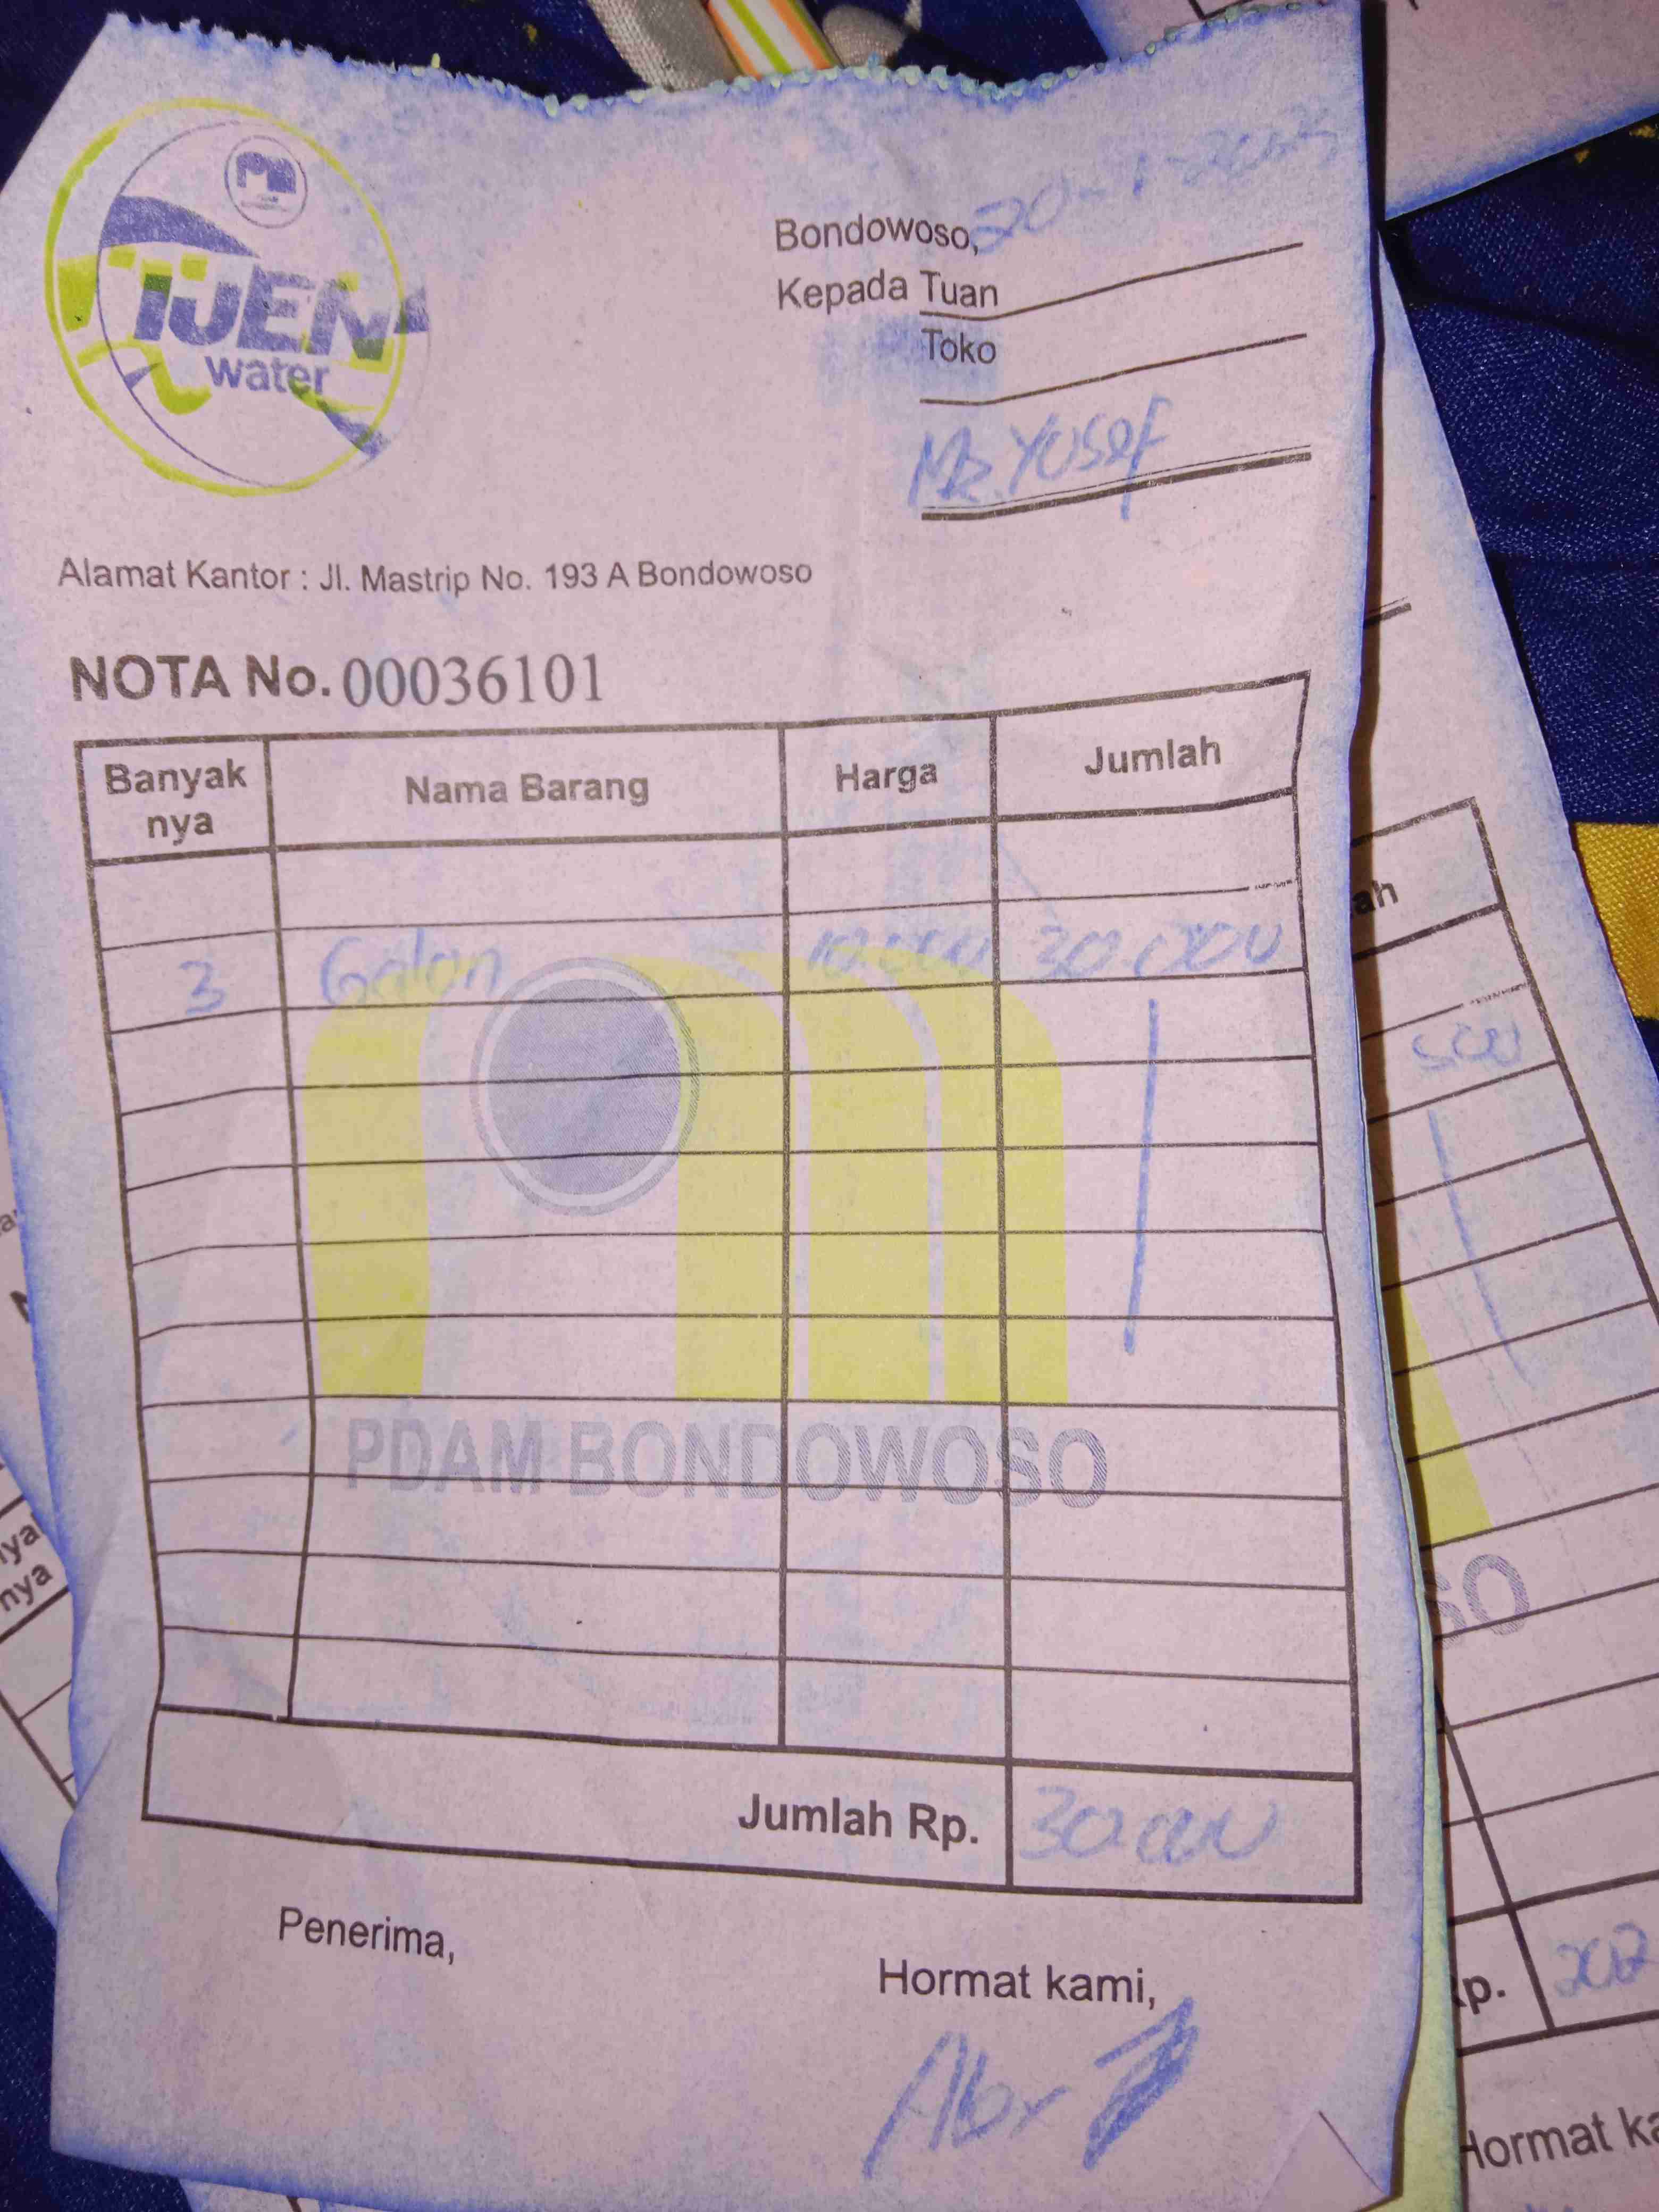 IJEN
water
Bondowoso, 20-1-2025
Kepada Tuan
Toko
Mr. Yosef
Alamat Kantor : Jl. Mastrip No. 193 A Bondowoso
NOTA No. 00036101
Banyak nya Nama Barang Harga Jumlah
3 Galon 10.000 30.000
PDAM BONDOWOSO
Jumlah Rp. 30.000
Penerima,
Hormat kami,
ah
500
SO
Rp.
nya
Hormat ka